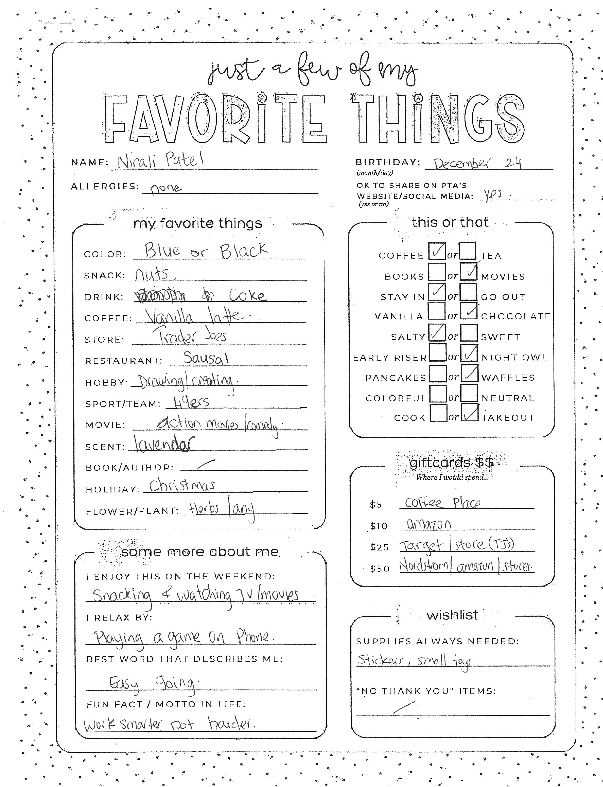 just a few of my
FAVORITE THINGS
NAME: Nirali Patel
ALLERGIES: none
BIRTHDAY: December 24
(month/day)
OK TO SHARE ON PTA'S
WEBSITE/SOCIAL MEDIA: yes
(yes or no)
my favorite things
COLOR: Blue or Black
SNACK: nuts
DRINK: Coke
COFFEE: Vanilla latte
STORE: Trader Joes
RESTAURANT: Sausal
HOBBY: Drawing/creating
SPORT/TEAM: 49ers
MOVIE: Action movies/comedy
SCENT: lavendar
BOOK/AUTHOR: /
HOLIDAY: Christmas
FLOWER/PLANT: Herbs/any
this or that
COFFEE ✓ or TEA
BOOKS or ✓ MOVIES
STAY IN ✓ or GO OUT
VANILLA or ✓ CHOCOLATE
SALTY ✓ or SWEET
EARLY RISER or ✓ NIGHT OWL
PANCAKES or ✓ WAFFLES
COLORFUL or NEUTRAL
COOK or ✓ TAKEOUT
giftcards $$
Where I would spend...
$5 Coffee Place
$10 amazon
$25 Target/store (TJ's)
$50 Nordstrom/amazon/stores
some more about me
I ENJOY THIS ON THE WEEKEND:
Snacking & watching TV/movies
I RELAX BY:
Playing a game on Phone.
BEST WORD THAT DESCRIBES ME:
Easy going.
FUN FACT / MOTTO IN LIFE:
Work smarter not harder.
wishlist
SUPPLIES ALWAYS NEEDED:
Stickers, small toy
"NO THANK YOU" ITEMS:
/